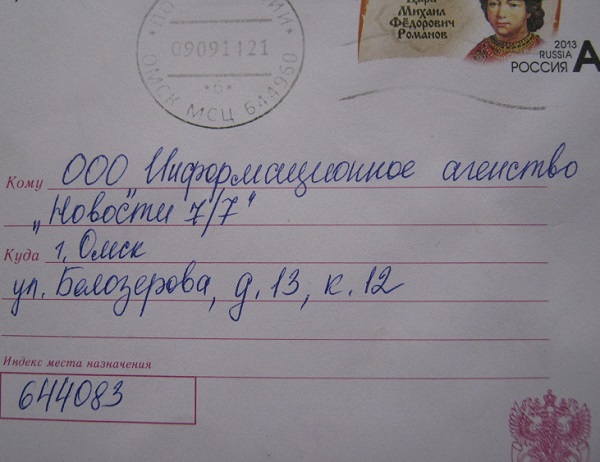 Царь
Михаил
Фёдорович
Романов
2013
RUSSIA
РОССИЯ А
09091421
ОМСК МСЦ 644960
Кому ООО Информационное агенство
„Новости 7/7"
Куда г. Омск
ул. Белозерова, д. 13, к. 12
Индекс места назначения
644083